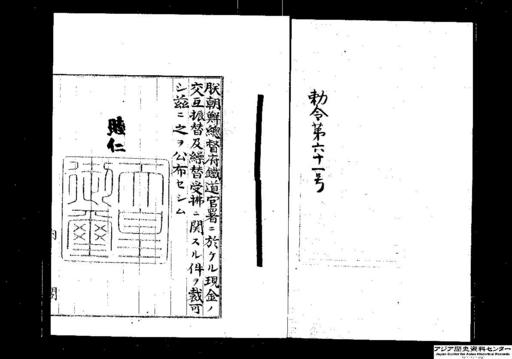 勅令第六十一号
朕朝鮮總督府鐵道官署ニ於ケル現金ノ
交互振替及繰替受拂ニ関スル件ヲ裁可
シ茲ニ之ヲ公布セシム
睦仁
天皇
御璽
内
閣
アジア歴史資料センター
Japan Center for Asian Historical Records